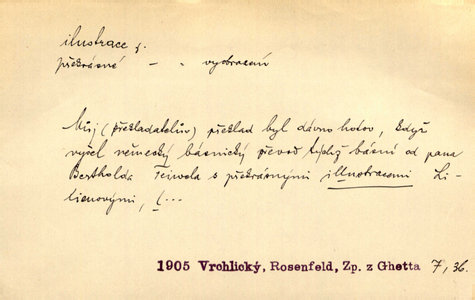 ilustrace f.
překrásné – „ – vyobrazení
Můj (překladatelův) překlad byl dávno hotov, když
vyšel německý básnický převod týchž básní od pana
Bertholda Feiwela s překrásnými illustracemi Li-
lienovými, (...
1905 Vrchlický, Rosenfeld, Zp. z Ghetta 7, 36.